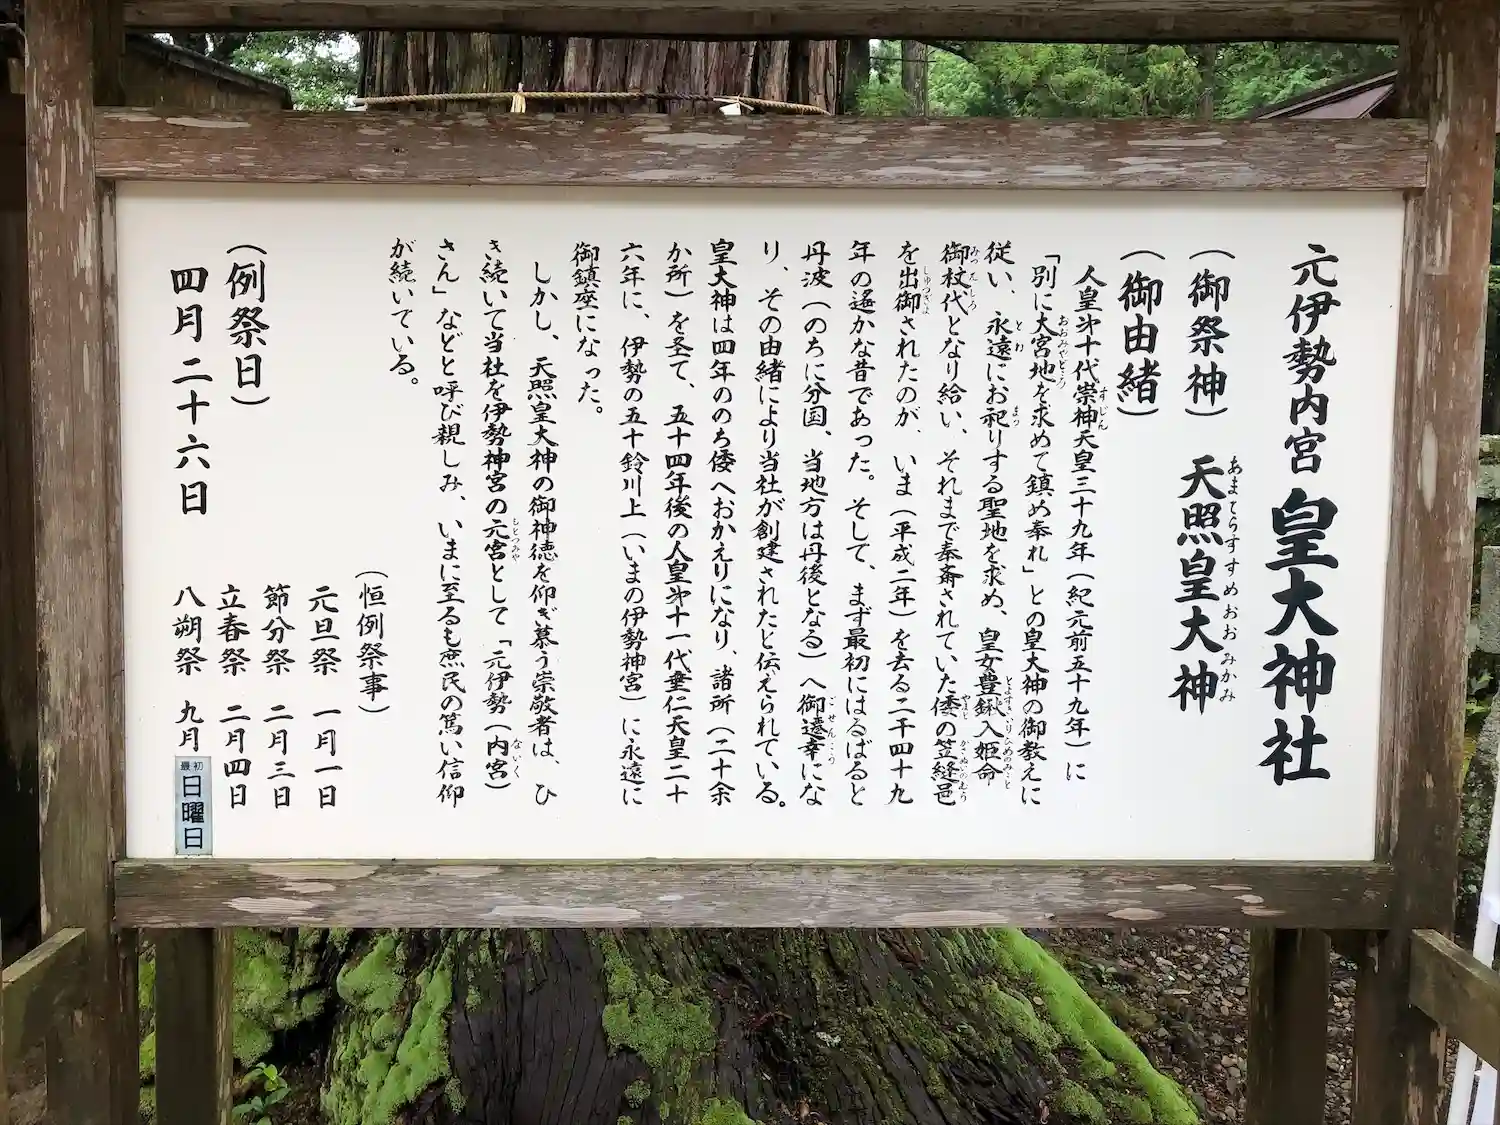 元伊勢内宮 皇大神社
(御祭神) 天照皇大神
あまてらすすめおおみかみ
(御由緒)
人皇第十代崇神天皇三十九年(紀元前五十九年)に
すじん
「別に大宮地を求めて鎮め奉れ」との皇大神の御教えに
おおみやどころ
従い、永遠にお祀りする聖地を求め、皇女豊鍬入姫命
とわ まつ とよすきいりひめのみこと
御杖代となり給い、それまで奉斎されていた倭の笠縫邑
みつえしろ やまと かさぬいのむら
を出御されたのが、いま(平成二年)を去る二千四十九
しゅつぎょ
年の遙かな昔であった。そして、まず最初にはるばると
丹波(のちに分国、当地方は丹後となる)へ御遷幸にな
ごせんこう
り、その由緒により当社が創建されたと伝えられている。
皇大神は四年ののち倭へおかえりになり、諸所(二十余
か所)を圣て、五十四年後の人皇第十一代垂仁天皇二十
六年に、伊勢の五十鈴川上(いまの伊勢神宮)に永遠に
御鎮座になった。
しかし、天照皇大神の御神徳を仰ぎ慕う崇敬者は、ひ
き続いて当社を伊勢神宮の元宮として「元伊勢(内宮)
もとつみや ないく
さん」などと呼び親しみ、いまに至るも庶民の篤い信仰
が続いている。
(恒例祭事)
元旦祭 一月一日
節分祭 二月三日
立春祭 二月四日
八朔祭 九月 最初 日曜日
(例祭日)
四月二十六日